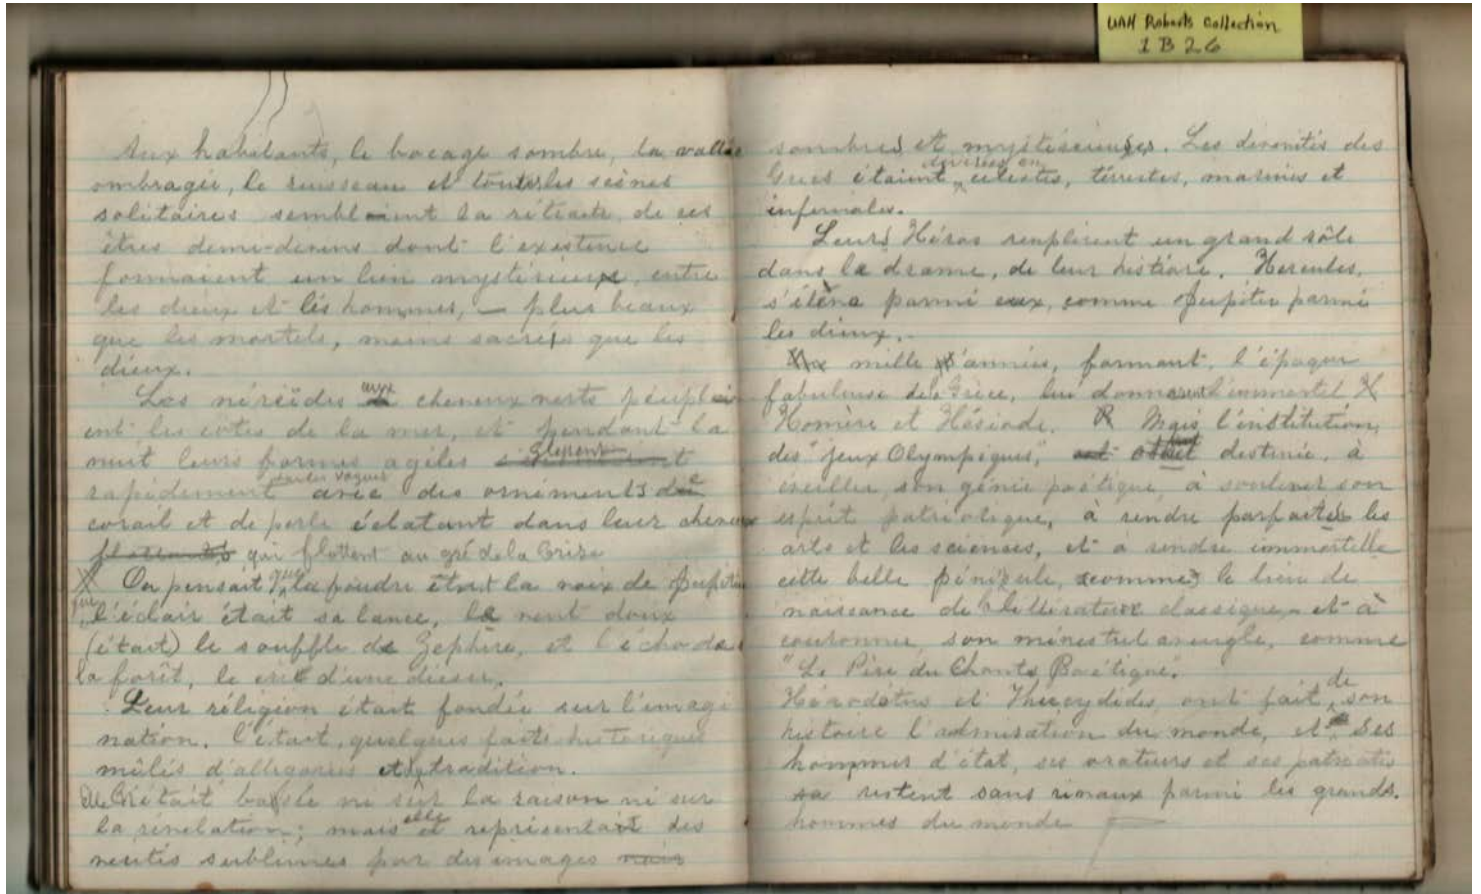 UAH Roberts Collection
1B26
Aux habitants, le bocage sombre, la vallée
ombragée, le ruisseau et toutes les scènes
solitaires semblaient la rétraite, de ces
êtres demi-devins dont l'existence
formaient un lien mystérieux, entre
les dieux et les hommes, — plus beaux
que les mortels, moins sacrés que les
dieux.
Les néréïdes aux cheveux verts peuplai
ent les cotes de la mer, et pendant la
nuit leurs formes agiles glissent
rapidement sur les vagues avec des ornéments de
corail et de perle éclatant dans leur cheveux
qui flottent au gré de la brise
X On pensait que la foudre était la voix de Jupiter
que l'éclair était sa lance, le vent doux
(était) le souffle de Zephère, et l'écho de
la forêt, le cri d'une déesse.
Leur réligion était fondée sur l'imagi
nation. C'était, quelques faits historiques
mêlés d'allégories et tradition.
Elle n'était basée ni sur la raison ni sur
la révelation; mais elle représentait des
verités sublimes par des images
sombres et mystérieuses. Les devinités des
Grecs étaient divisées en célestes, térrestes, marines et
infernales.
Leurs Héros remplirent un grand rôle
dans le drame, de leur histiore. Hercules,
s'éléva parmi eux, comme Jupiter parmi
les dieux.
mille d'années, formant, l'époque
fabuleuse de la Grèce, lui donnerent l'immortel X
Homère et Hésiode. Mais l'institution,
des "jeux Olympiques," destinée, à
éveiller, son génie poétique, à soulever son
esprit patriotique, à rendre parfaites les
arts et les sciences, et à rendre immortelle
cette belle péninsule, comme le lieu de
naissance de la littérature classique, et à
couronner son ménestrel aveugle, comme
"Le Père du Chants Poétique".
Hérodotus et Thucydides, ont fait de son
histoire l'admiration du monde, et ses
hommes d'état, ses orateurs et ses patriotes
restent sans rivaux parmi les grands.
hommes du monde